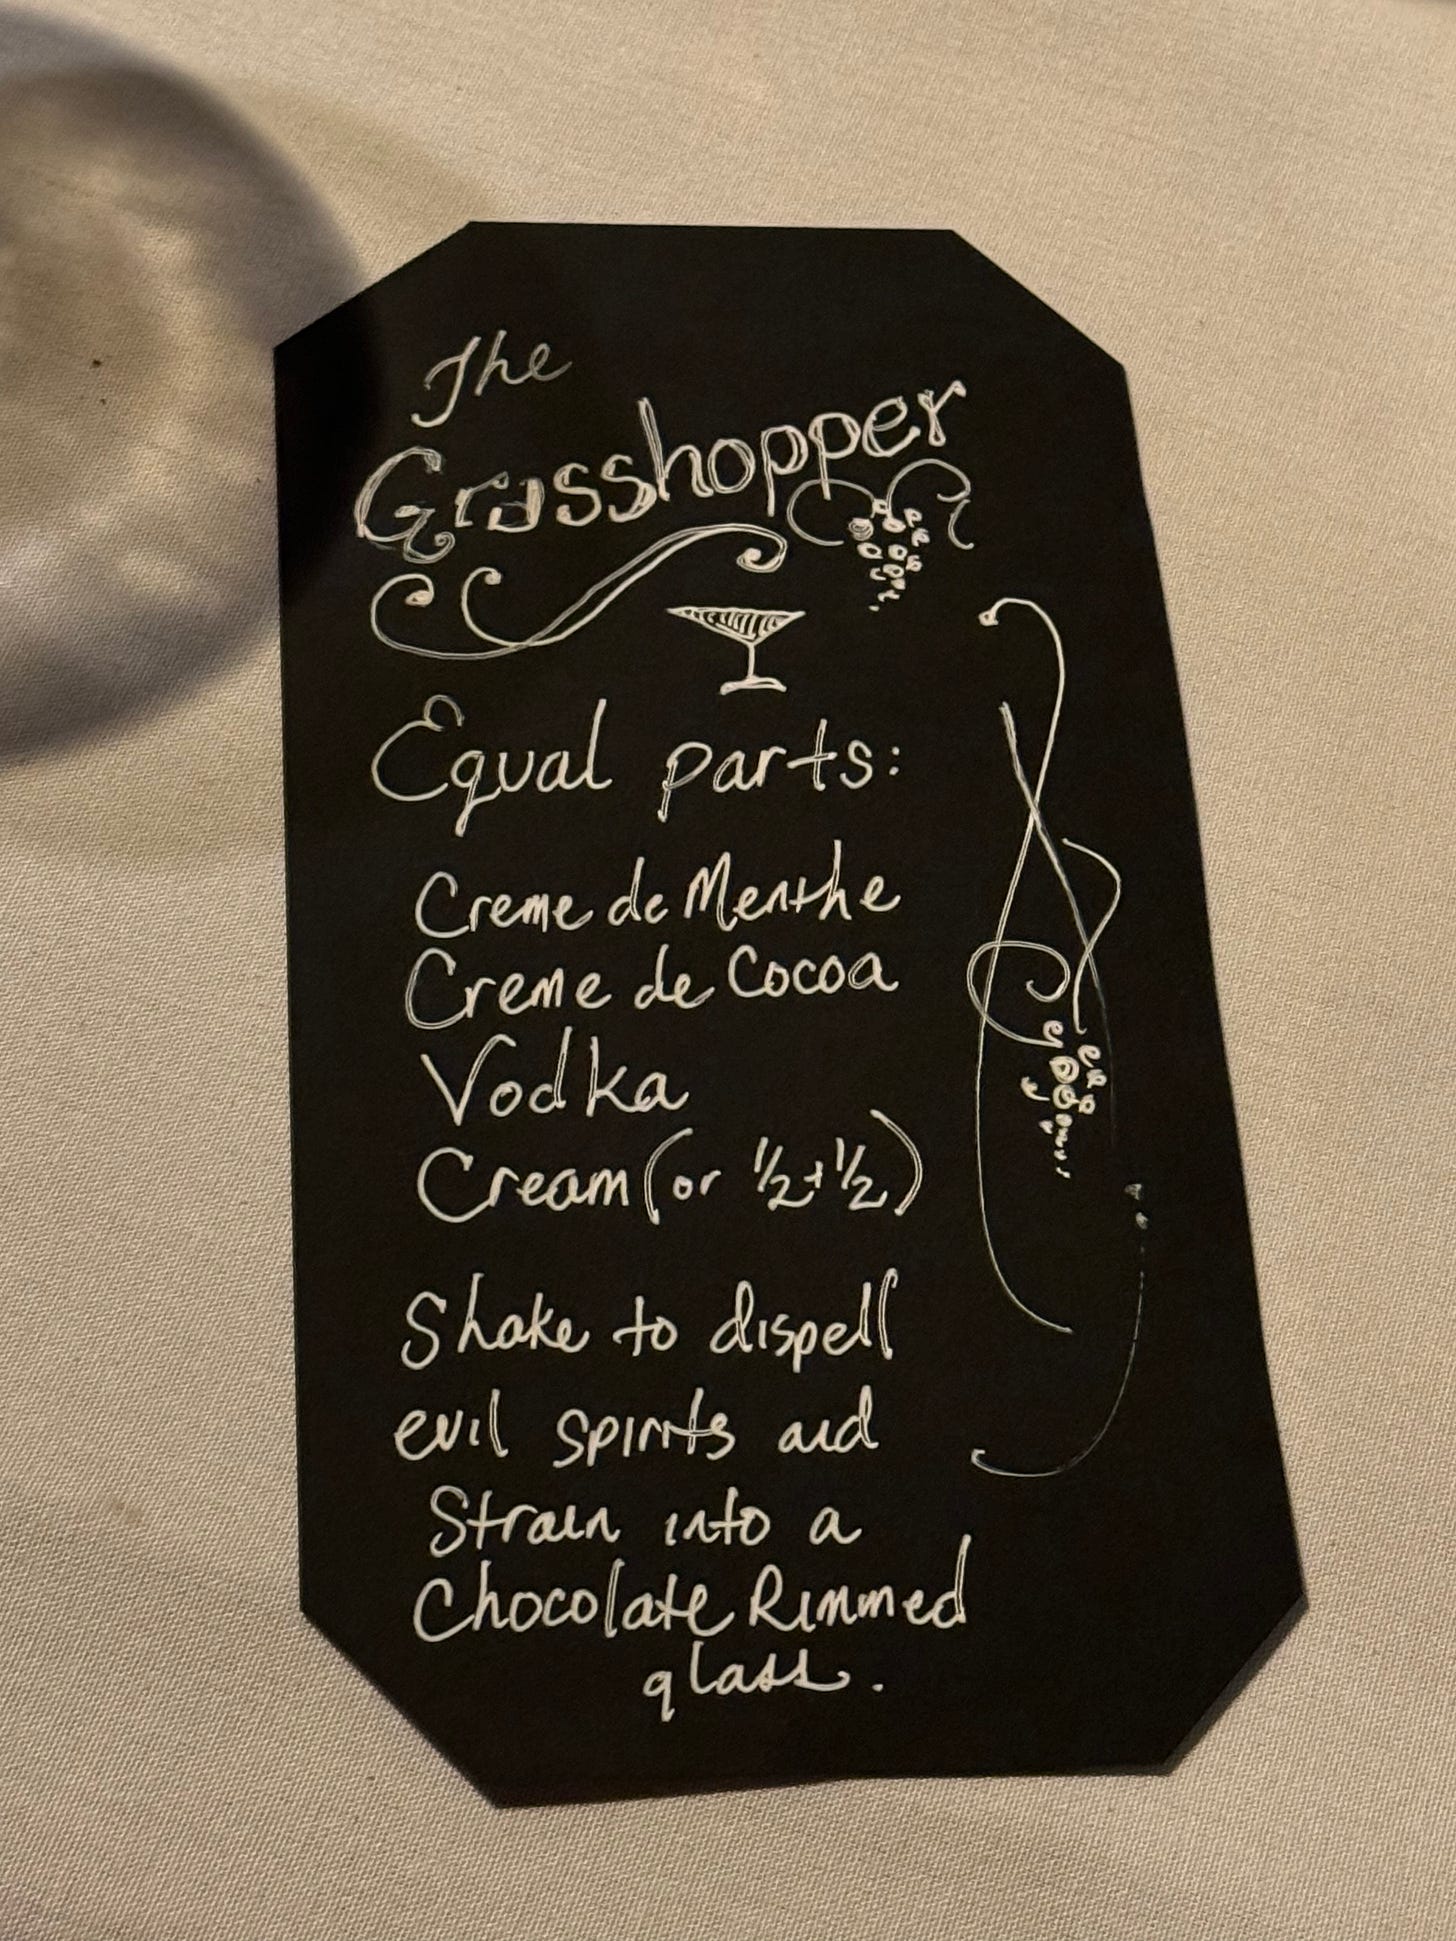 The
Grasshopper
Equal parts:
Creme de Menthe
Creme de Cocoa
Vodka
Cream (or 1/2 + 1/2)
Shake to dispell
evil spirits and
Strain into a
Chocolate Rimmed
glass.